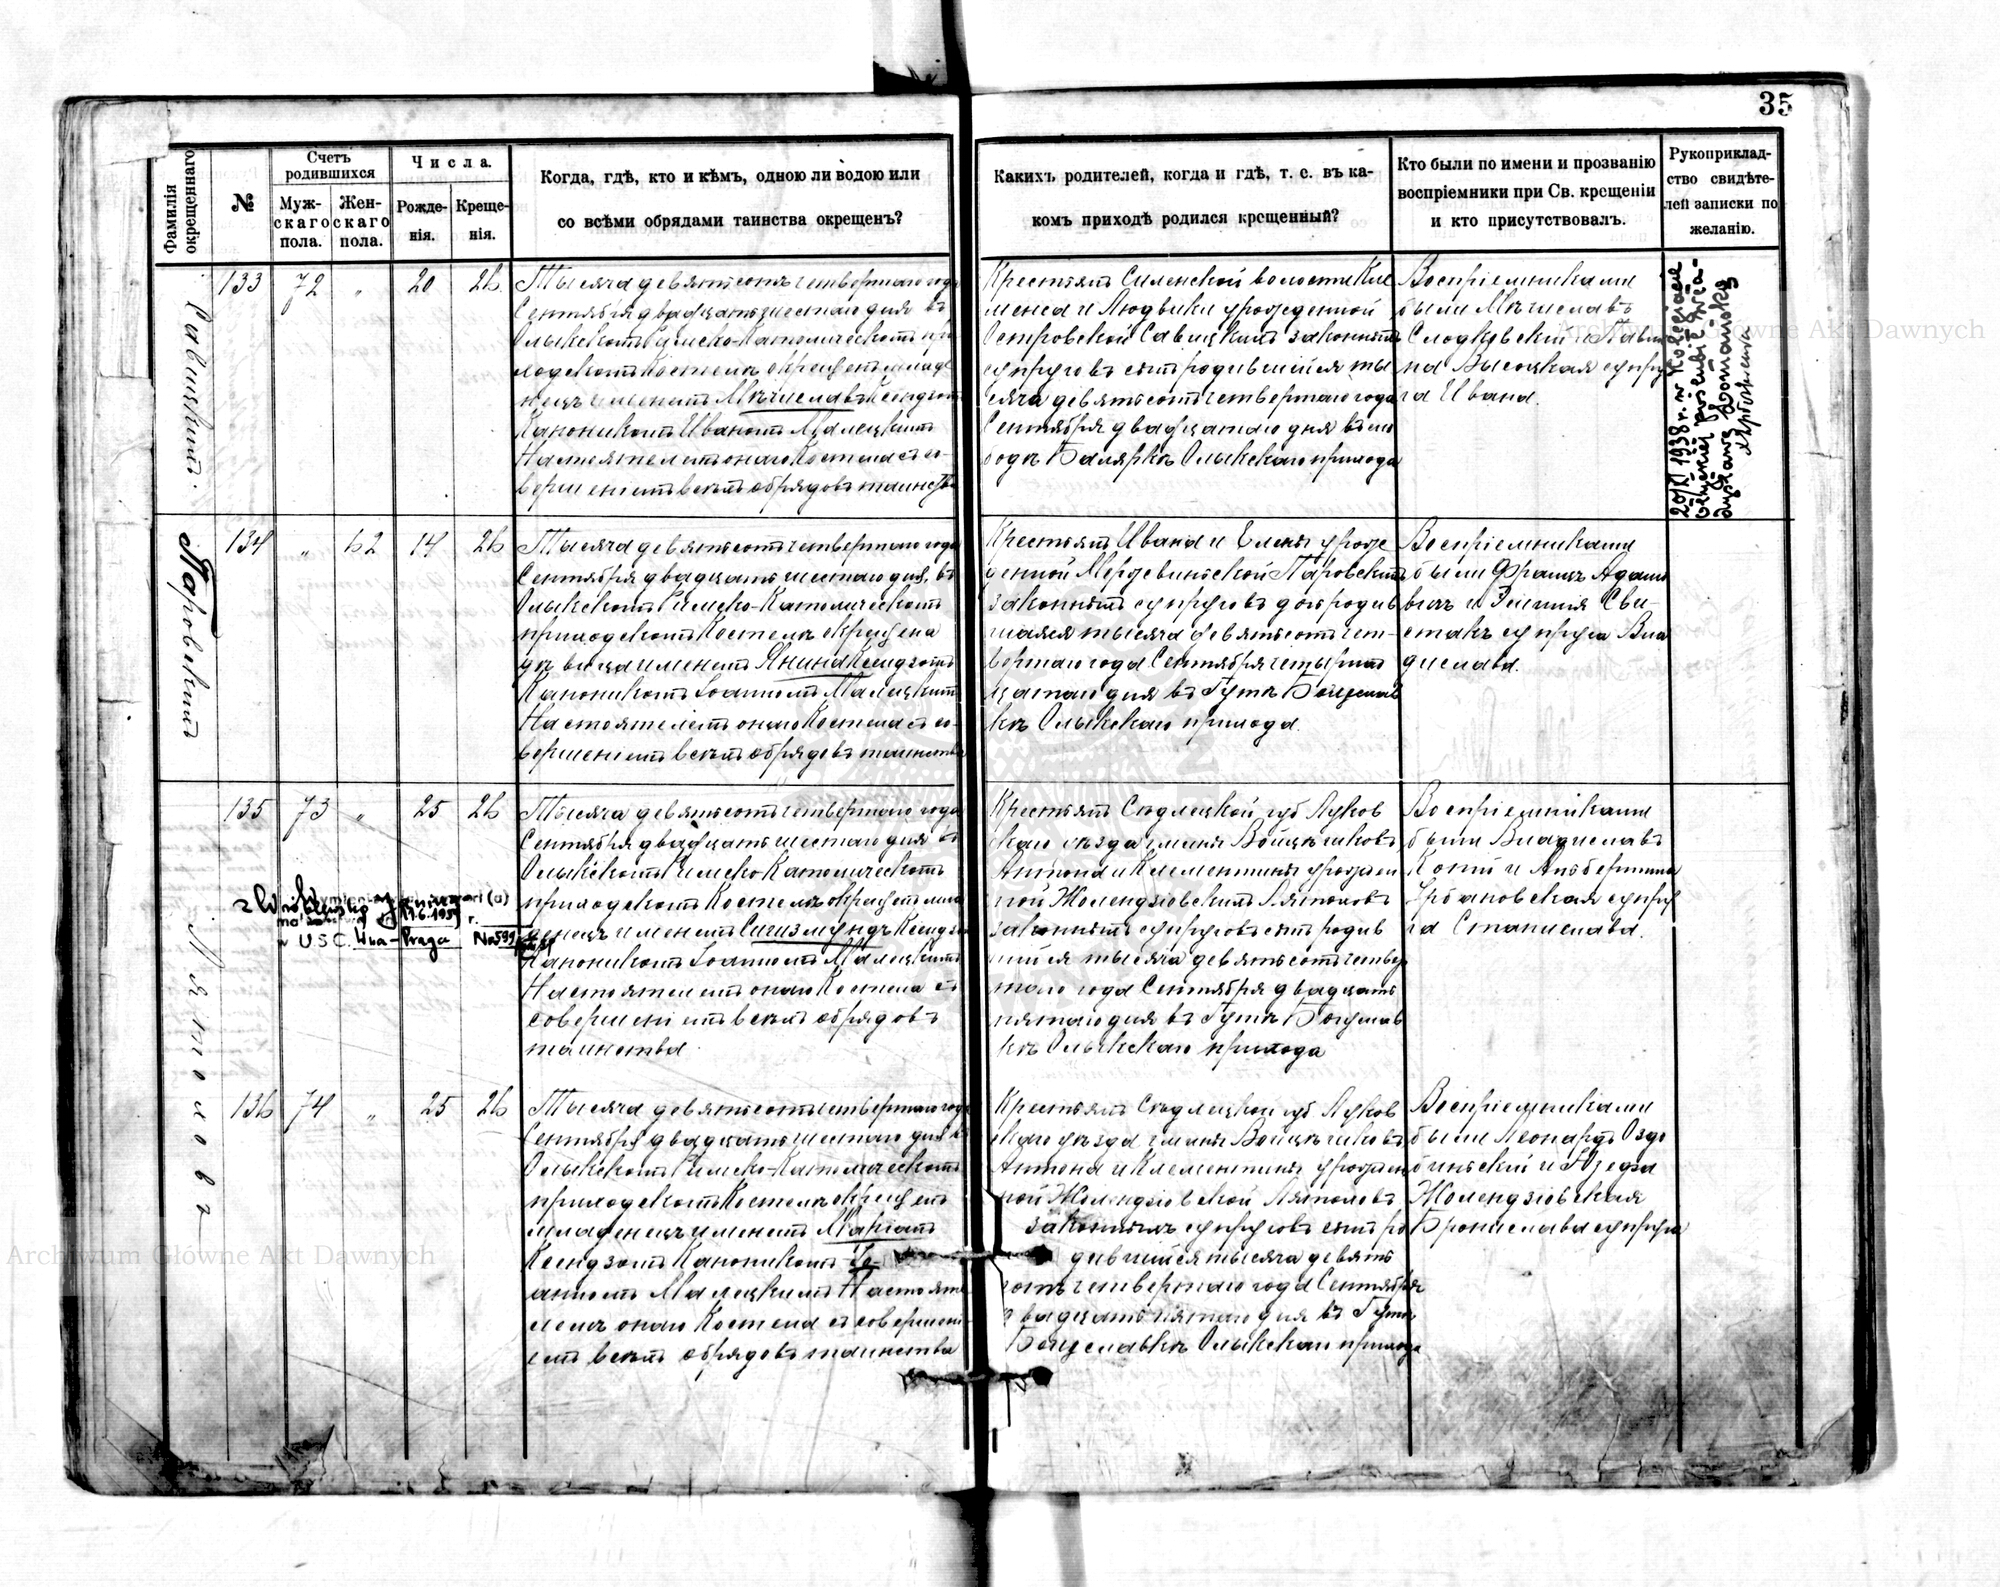 35
Фамилія окрещеннаго
№
Счетъ родившихся
Муж-
скаго
пола.
Жен-
скаго
пола.
Числа.
Рожде-
нія.
Креще-
нія.
Когда, гдѣ, кто и кѣмъ, одною ли водою или
со всѣми обрядами таинства окрещенъ?
Какихъ родителей, когда и гдѣ, т. е. въ ка-
комъ приходѣ родился крещенный?
Кто были по имени и прозванію
воспріемники при Св. крещеніи
и кто присутствовалъ.
Рукоприклад-
ство свидѣте-
лей записки по
желанію.
Савицкий.
133 72 „ 20 26.
Тысяча девятьсотъ четвертаго года
Сентября двадцать шестаго дня въ
Олыкскомъ Римско-Католическомъ при
ходскомъ Костелѣ окрещенъ младе
нецъ именемъ Мѣчиславъ Ксендзомъ
Каноникомъ Иваномъ Малецкимъ
Настоятелемъ онаго Костела съ со-
вершеніемъ всѣхъ обрядовъ таинства
Крестьянъ Силенской волости Кле
менса и Людвики урожденной
Островской Савицкихъ законныхъ
супруговъ сынъ родившийся ты
сяча девятьсотъ четвертаго года
Сентября двадцатаго дня въ
Балярке Олыкскаго прихода
Воспріемниками
были Мѣчиславъ
Слодковский и Павли
на Высоцкая супру
га Ивана.
20/XI 1938 r. w Kolegiacie
ołyckiej poślubił Wa-
Паровский
134 „ 62 14 26
Тысяча девятьсотъ четвертаго года
Сентября двадцать шестаго дня, въ
Олыкскомъ Римско-Католическомъ
приходскомъ Костелѣ окрещена
дѣвица именемъ Янина Ксендзомъ
Каноникомъ Іоанномъ Малецкимъ
Настоятелемъ онаго Костела съ со-
вершеніемъ всѣхъ обрядовъ таинства
Крестьянъ Ивана и Елены урож
денной Мержвиньской Паровскихъ
законныхъ супруговъ дочь родив
шаяся тысяча девятьсотъ чет-
вертаго года Сентября четырнад
цатаго дня въ Гутѣ Богуслав
кѣ Олыкскаго прихода.
Воспріемниками
были Францъ Адамо
вичъ и Эмилія Сви-
стакъ супруга Вла
дислава.
Лятоховъ
135 73 „ 25 26
Тысяча девятьсотъ четвертаго года
Сентября двадцать шестаго дня въ
Олыкскомъ Римско Католическомъ
приходскомъ Костелѣ окрещенъ мла
денецъ именемъ Сигизмундъ Ксендзо
Каноникомъ Іоанномъ Малецкимъ
Настоятелемъ онаго Костела съ
совершеніемъ всѣхъ обрядовъ
таинства
Крестьянъ Сѣдлецкой губ Луков
скаго уѣзда гмины Войцѣшковъ
Антона и Клементины урожден
ной Жолендзіовскихъ Лятоховъ
законныхъ супруговъ сынъ родив
шийся тысяча девятьсотъ четвер
таго года Сентября двадцать
пятаго дня въ Гутѣ Богуслав
кѣ Олыкскаго прихода
Воспріемниками
были Владиславъ
и Альбертина
Урбановская супру
га Станислава.
w U.S.C. W-wa - Praga No 599
136 74 „ 25 26
Тысяча девятьсотъ четвертаго года
Сентября двадцать шестаго дня въ
Олыкскомъ Римско-Католическомъ
приходскомъ Костелѣ окрещенъ
младенецъ именемъ Маріанъ
Ксендзомъ Каноникомъ Іо-
анномъ Малецкимъ Настояте
лемъ онаго Костела съ совершені
емъ всѣхъ обрядовъ таинства
Крестьянъ Сѣдлецкой губ Луков
скаго уѣзда гмины Войцѣшковъ
Антона и Клементины урожден
ной Жолендзіовской Лятоховъ
законныхъ супруговъ сынъ ро
дившийся тысяча девять
сотъ четвертаго года Сентября
двадцать пятаго дня въ Гутѣ
Богуславкѣ Олыкскаго прихода
Воспріемниками
были Леонардъ Оздо
биньский и Юзефа
Жолендзіовская
Бронислава супруга
Archiwum Główne Akt Dawnych
Archiwum Główne Akt Dawnych